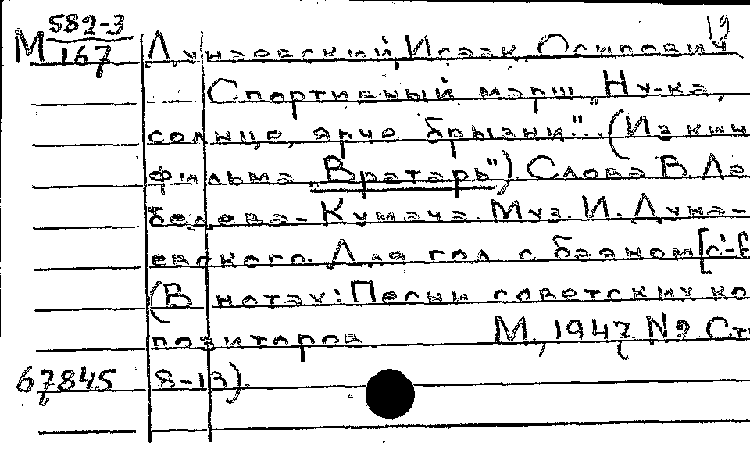 582-3 19
М 167 Дунаевский, Исаак Осипович
Спортивный марш „Ну-ка,
солнце, ярче брызни". (Из кин
фильма „Вратарь") Слова В. Ле
бедева-Кумача. Муз. И. Дуна-
евского. Для гол. с баяном
(В нотах: Песни советских ко
позиторов. М., 1947 № 9 Ст
67845 8-13).